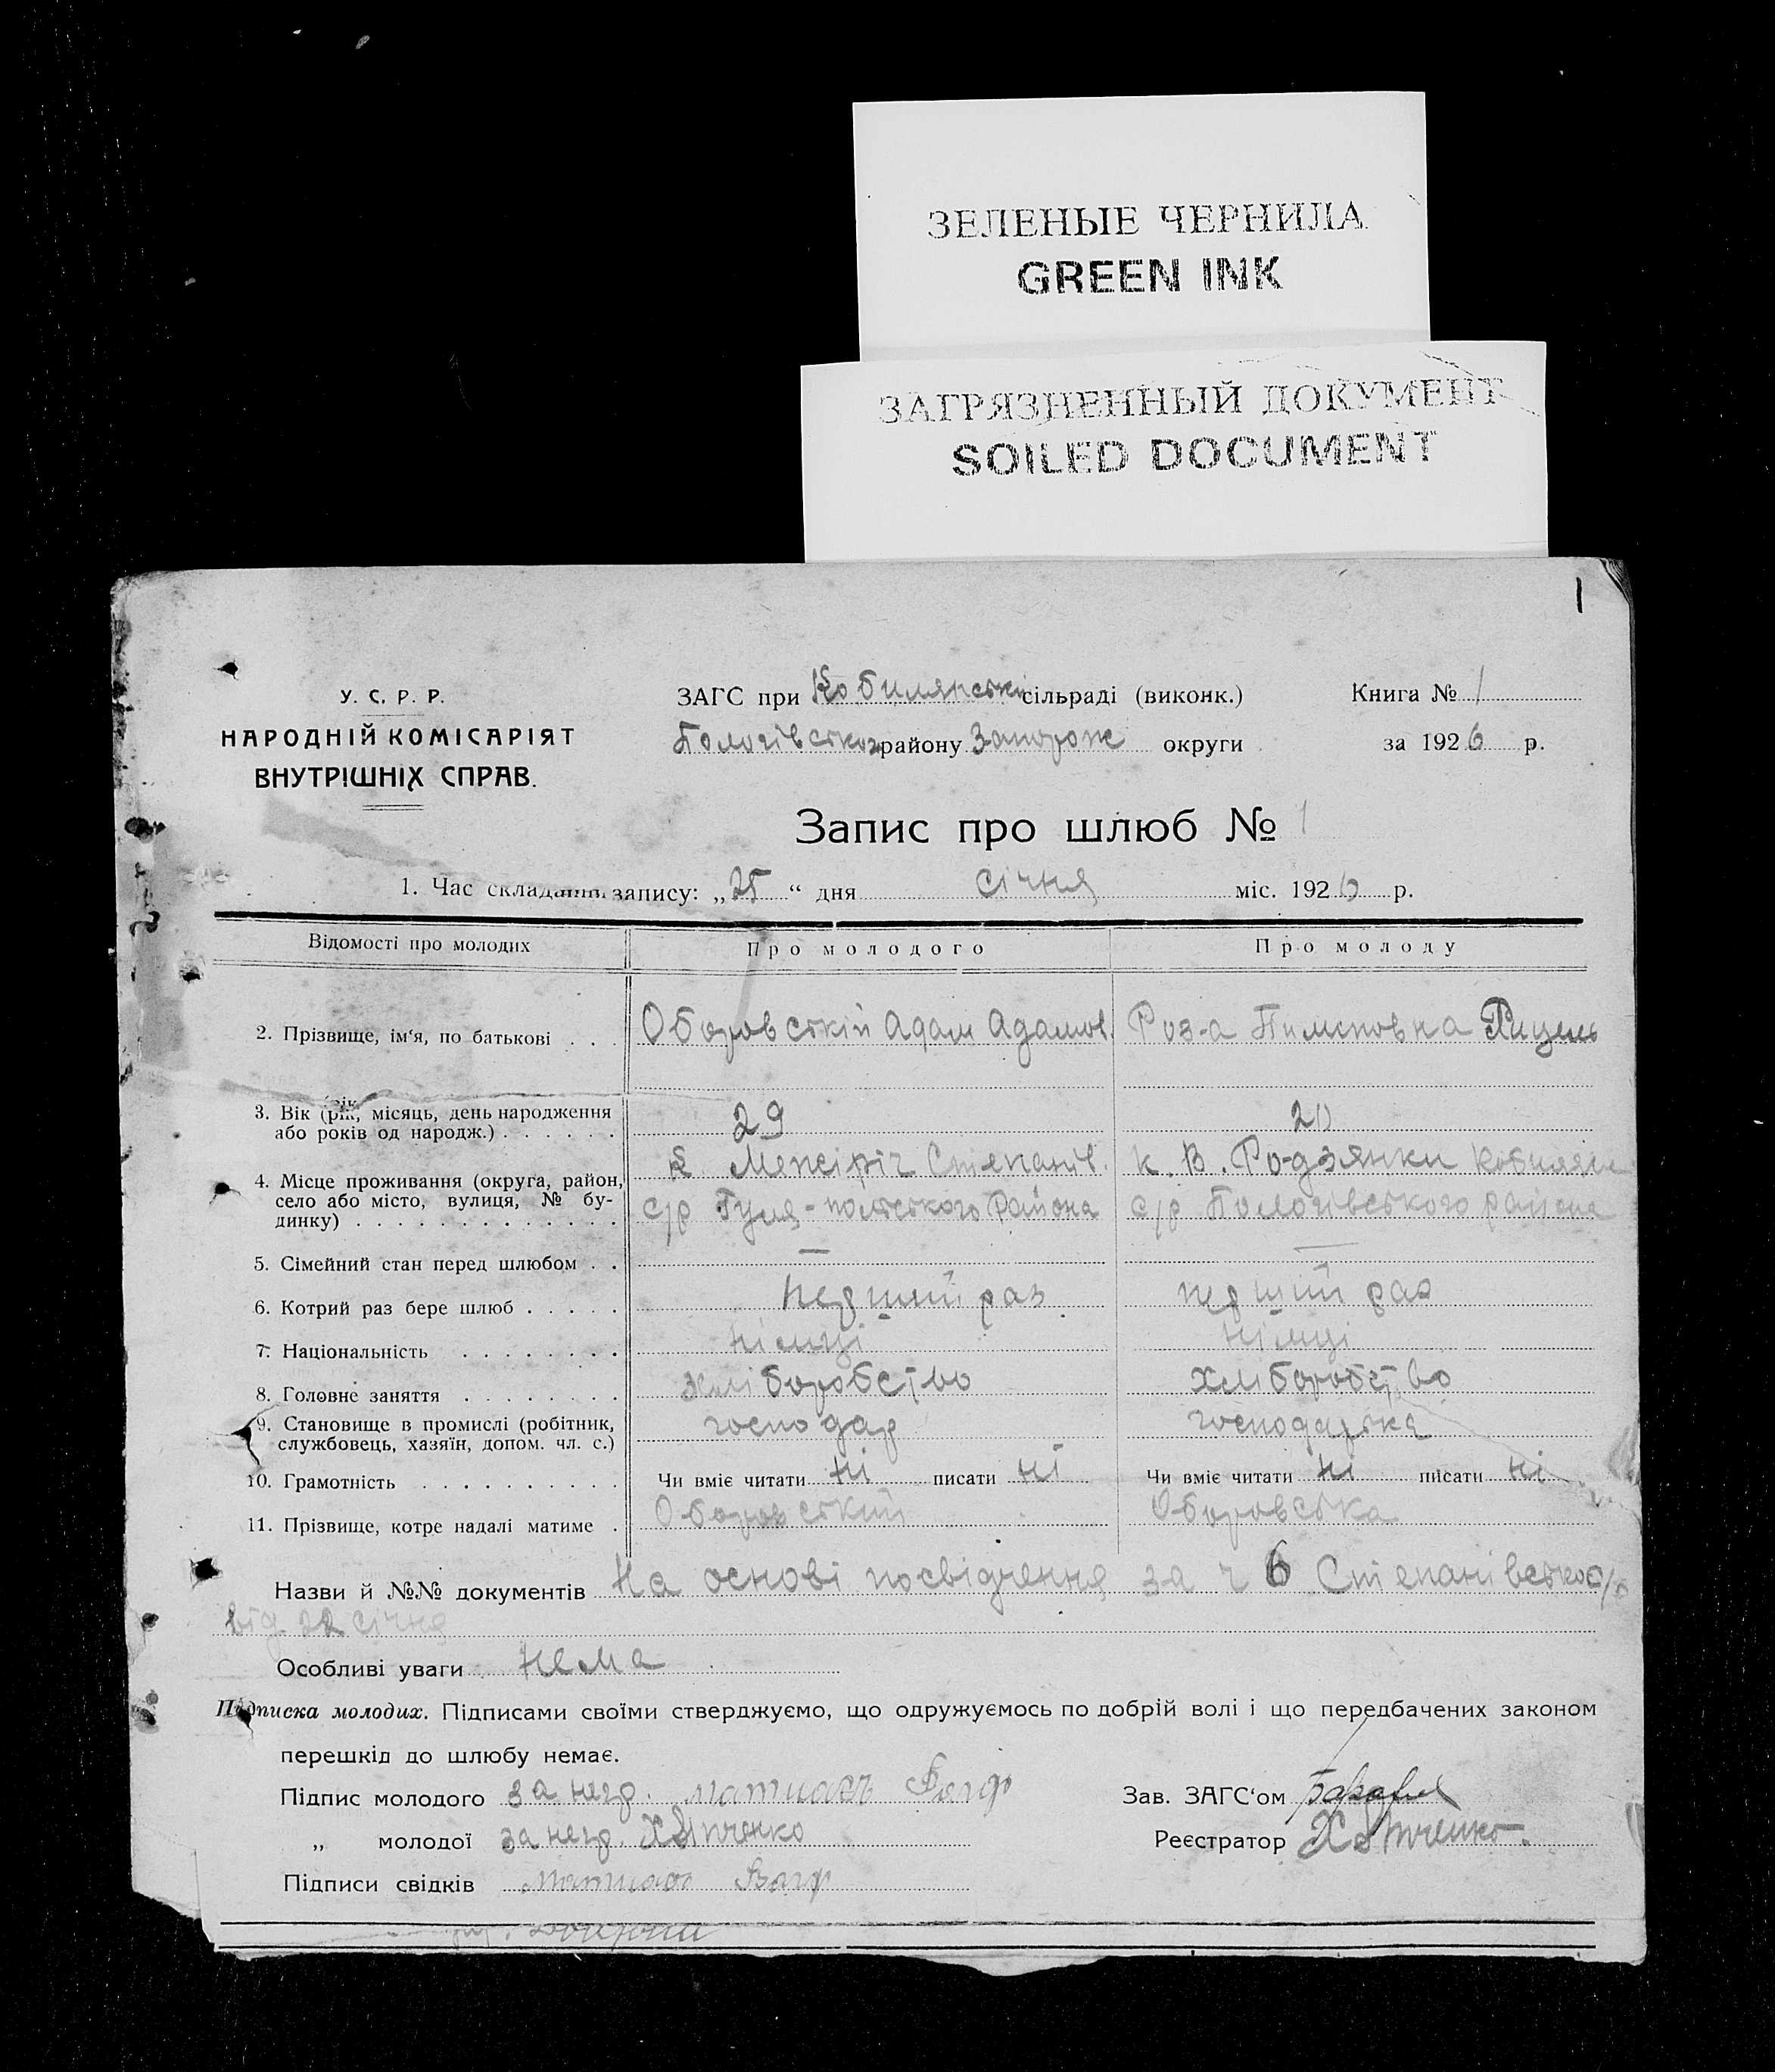 ЗЕЛЕНЫЕ ЧЕРНИЛА
GREEN INK
ЗАГРЯЗНЕННЫЙ ДОКУМЕНТ
SOILED DOCUMENT
1
У. С. Р. Р.
НАРОДНІЙ КОМІСАРІЯТ
ВНУТРІШНІХ СПРАВ.
ЗАГС при Кобилянські сільраді (виконк.)
Пологівського району Запорож округи
Книга № 1
за 1926 р.
Запис про шлюб № 1
1. Час складання запису: „25“ дня січня міс. 1926 р.
Відомості про молодих Про молодого Про молоду
2. Прізвище, ім'я, по батькові . . . Оборовській Адам Адамов. Роз-а Рицель
3. Вік (рік, місяць, день народження
або років од народж.) . . . . . . 29 20
4. Місце проживання (округа, район,
село або місто, вулиця, № бу-
динку) . . . . . . . . . . . .
Межіріч Степанів. к. В. Родзянки
с/р Гуля-польського района с/р Пологівського района
5. Сімейний стан перед шлюбом . . — —
6. Котрий раз бере шлюб . . . . . перший раз перший раз
7. Національність . . . . . . . . німці німці
8. Головне заняття . . . . . . . . хліборобство хліборобство
9. Становище в промислі (робітник,
службовець, хазяїн, допом. чл. с.) господар господарка
10. Грамотність . . . . . . . . . . Чи вміє читати ні писати ні Чи вміє читати ні писати ні
11. Прізвище, котре надалі матиме . Оборовський Оборовська
Назви й №№ документів На основі посвідчення за ч 6 Степанівської с/р
від 22 січня
Особливі уваги нема
Підписка молодих. Підписами своїми стверджуємо, що одружуємось по добрій волі і що передбачених законом
перешкід до шлюбу немає.
Підпис молодого за негр. матиавъ
Зав. ЗАГС'ом
„ молодої за негр.
Реєстратор
Підписи свідків